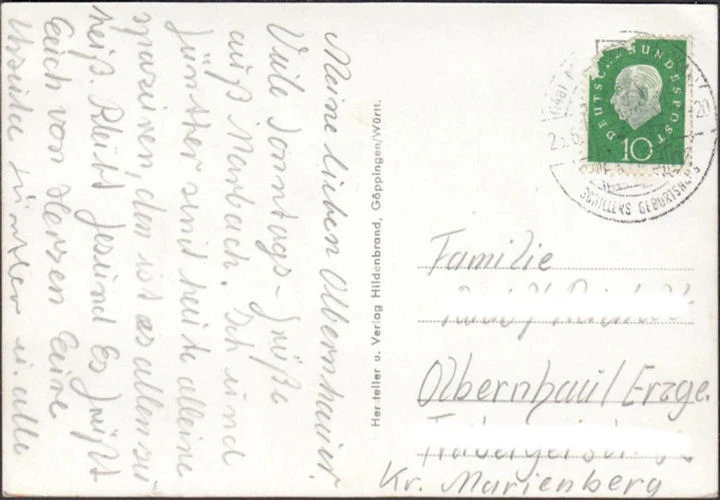 Meine lieben Olbernhauer.
Viele Sonntags-Grüße
aus Marbach. Ich und
Günther sind heute alleine
spazieren, den ist es allem zu
heiß. Bleibt gesund Es grüßt
Euch von Herzen Eure
Günther u. alle
Hersteller u. Verlag Hildenbrand, Göppingen/Württ.
DEUTSCHE BUNDESPOST
10
SCHILLERS GEBURTSHAUS
Familie
Olbernhau/Erzge.
Kr. Marienberg